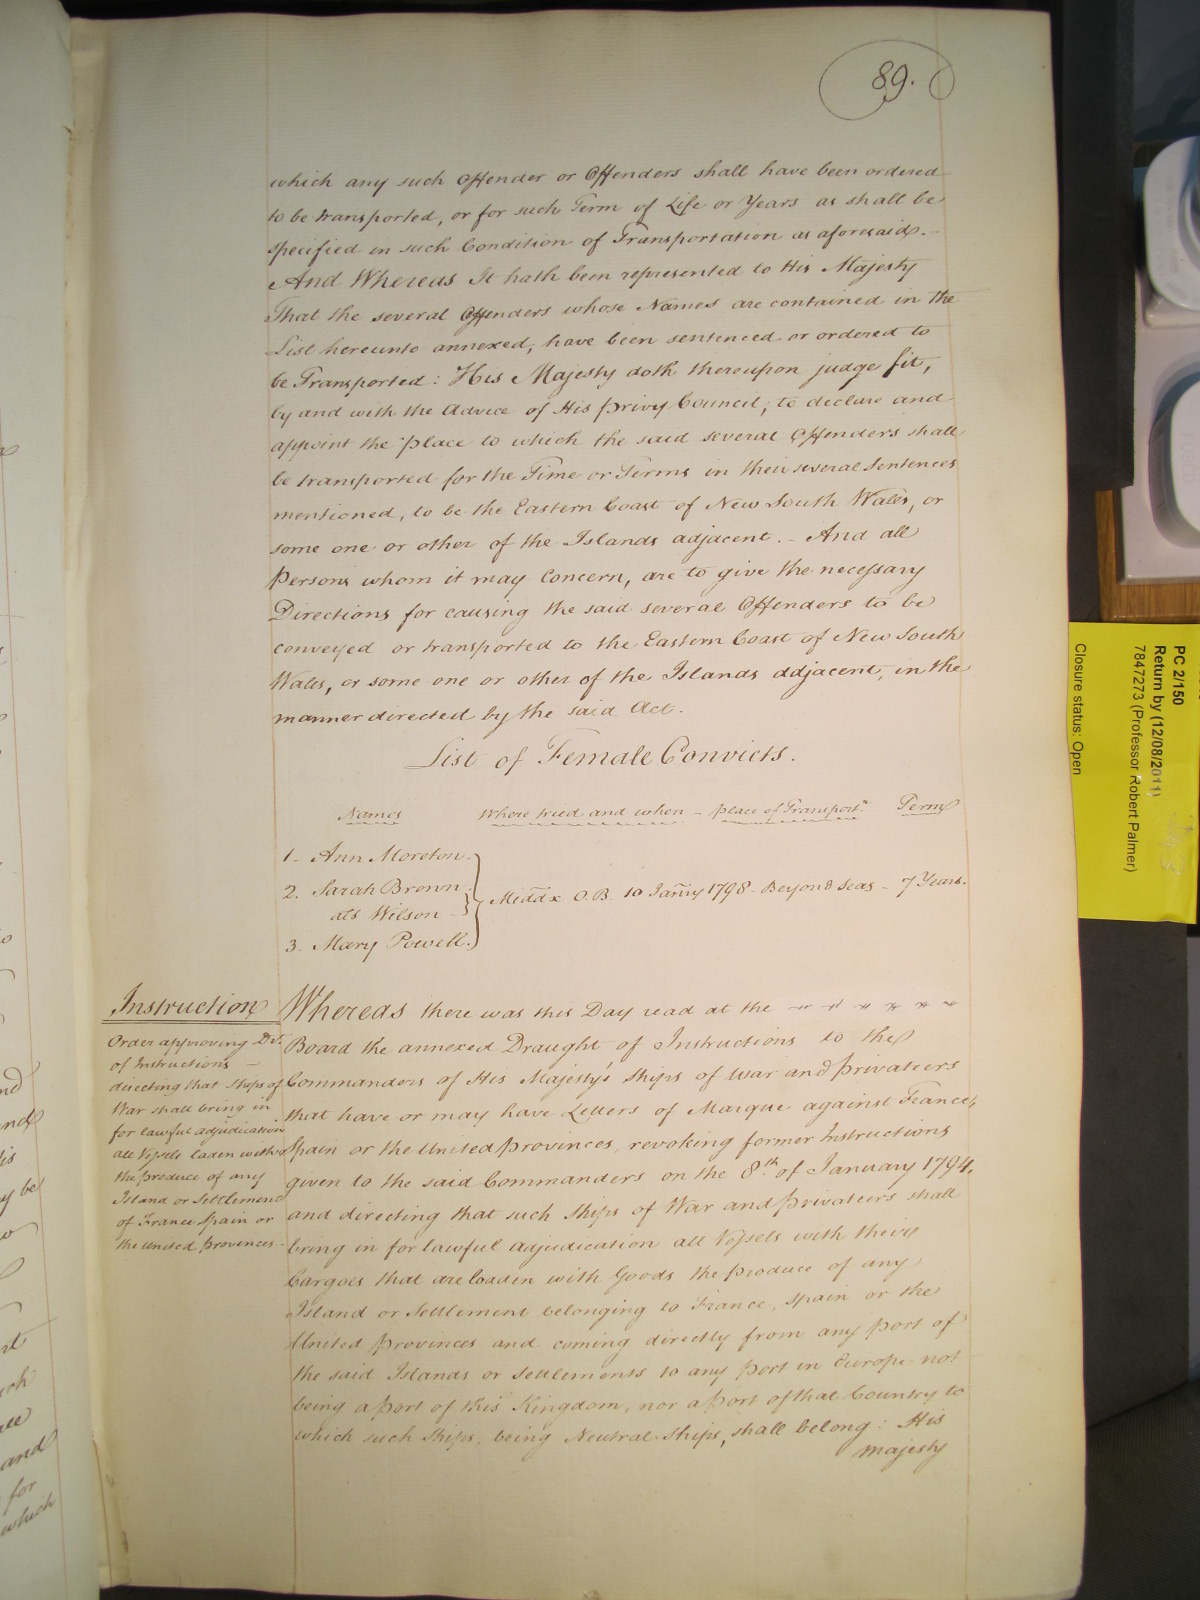 89.
which any such Offender or Offenders shall have been ordered
to be transported, or for such Term of Life or Years as shall be
specified in such Condition of Transportation as aforesaid. -
And Whereas It hath been represented to His Majesty
That the several Offenders whose Names are contained in the
List hereunto annexed, have been sentenced or ordered to
be Transported: His Majesty doth thereupon judge fit,
by and with the Advice of His privy Council, to declare and
appoint the place to which the said several Offenders shall
be transported for the Time or Terms in their several Sentences
mentioned, to be the Eastern Coast of New South Wales, or
some one or other of the Islands adjacent. - And all
Persons whom it may Concern, are to give the necessary
Directions for causing the said several Offenders to be
conveyed or transported to the Eastern Coast of New South
Wales, or some one or other of the Islands adjacent, in the
manner directed by the said Act.
List of Female Convicts.
Names Where tried and when - place of Transportn. Term
1. Ann Moreton.
2. Sarah Brown
ats Wilson
Middx O.B. 10 Janry 1798 - Beyond Seas - 7 Years.
3. Mary Powell.
Instruction
Order approving Dt.
of Instructions -
directing that Ships of
War shall bring in
for lawful adjudication
all Vessels laden with
the produce of any
Island or Settlement
of France Spain or
the United provinces -
Whereas there was this Day read at the
Board the annexed Draught of Instructions to the
Commanders of His Majesty's Ships of War and privateers
that have or may have Letters of Marque against France,
Spain or the United provinces, revoking former Instructions
given to the said Commanders on the 8th. of January 1794.
and directing that such Ships of War and privateers shall
bring in for lawful adjudication all Vessels with their
Cargoes that are loaden with Goods the produce of any
Island or Settlement belonging to France, Spain or the
United provinces and coming directly from any port of
the said Islands or Settlements to any port in Europe not
being a port of this Kingdom, nor a port of that Country to
which such Ships, being Neutral Ships, shall belong: His
Majesty
PC 2/150
Return by (12/08/2011)
7847273 (Professor Robert Palmer)
Closure status: Open